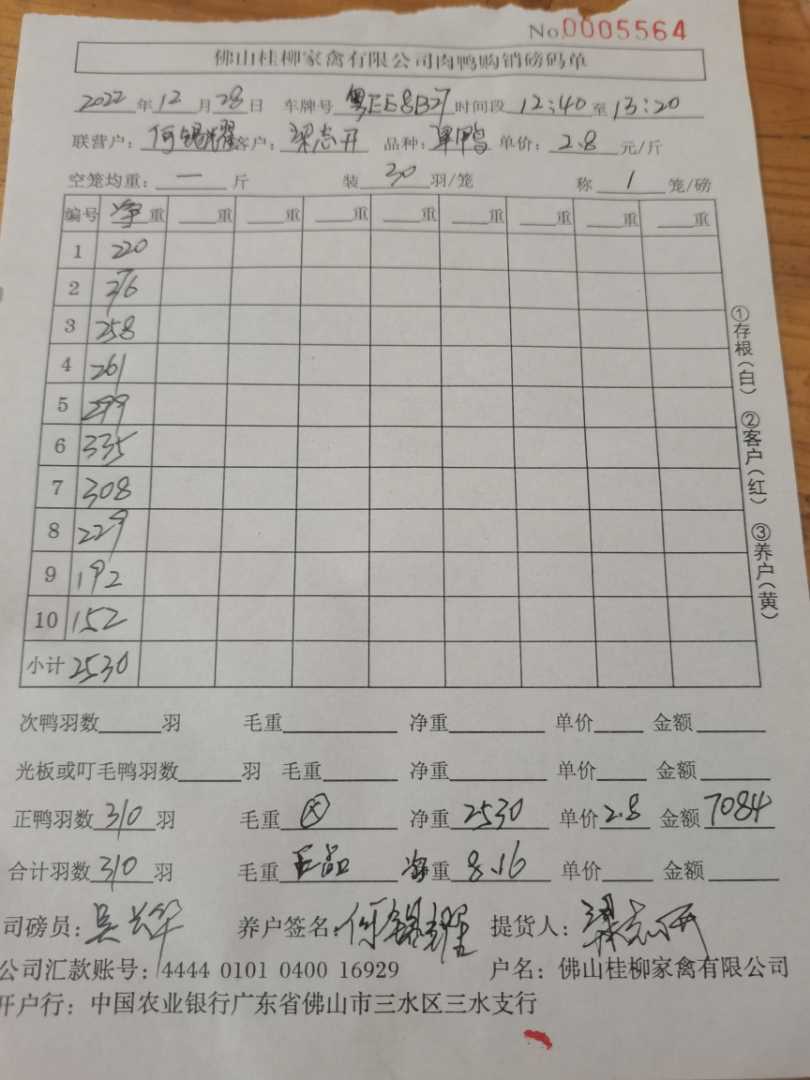 No 0005564
佛山桂柳家禽有限公司肉鸭购销磅码单
2022年12月28日 车牌号 粤EE8B27 时间段 12:40 至 13:20
联营户：何锡耀 客户：梁志开 品种：单鸭 单价：2.8 元/斤
空笼均重：一 斤 装 30 羽/笼 称 1 笼/磅
编号 净重 重 重 重 重 重 重 重 重
1 220
2 276
3 258
4 261
5 299
6 335
7 308
8 229
9 192
10 152
小计 2530
①存根(白) ②客户(红) ③养户(黄)
次鸭羽数 羽 毛重 净重 单价 金额
光板或叮毛鸭羽数 羽 毛重 净重 单价 金额
正鸭羽数 310 羽 毛重 净重 2530 单价 2.8 金额 7084
合计羽数 310 羽 毛重 净重 8.16 单价 金额
司磅员：吴 华 养户签名：何锡耀 提货人：梁志开
公司汇款账号：4444 0101 0400 16929 户名：佛山桂柳家禽有限公司
开户行：中国农业银行广东省佛山市三水区三水支行